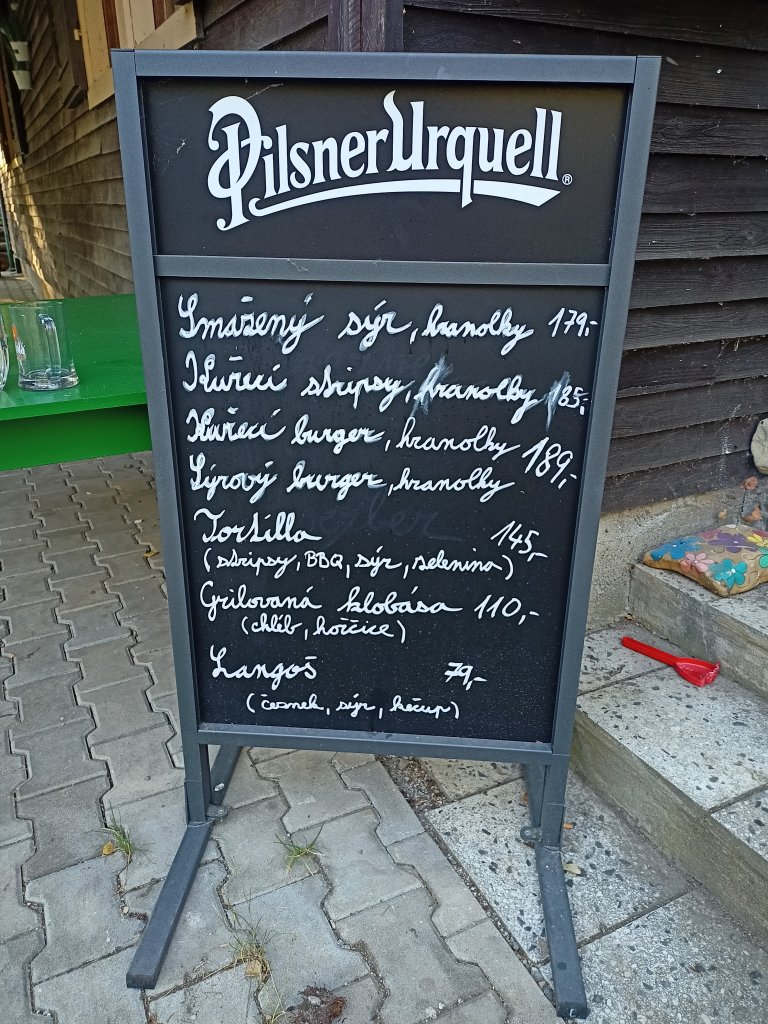 Pilsner Urquell®
Smažený sýr, hranolky 179,-
Kuřecí stripsy, hranolky 185,-
Kuřecí burger, hranolky 189,-
Sýrový burger, hranolky
Tortilla 145,-
(stripsy, BBQ, sýr, zelenina)
Grilovaná klobása 110,-
(chléb, hořčice)
Langoš 79,-
(česnek, sýr, kečup)